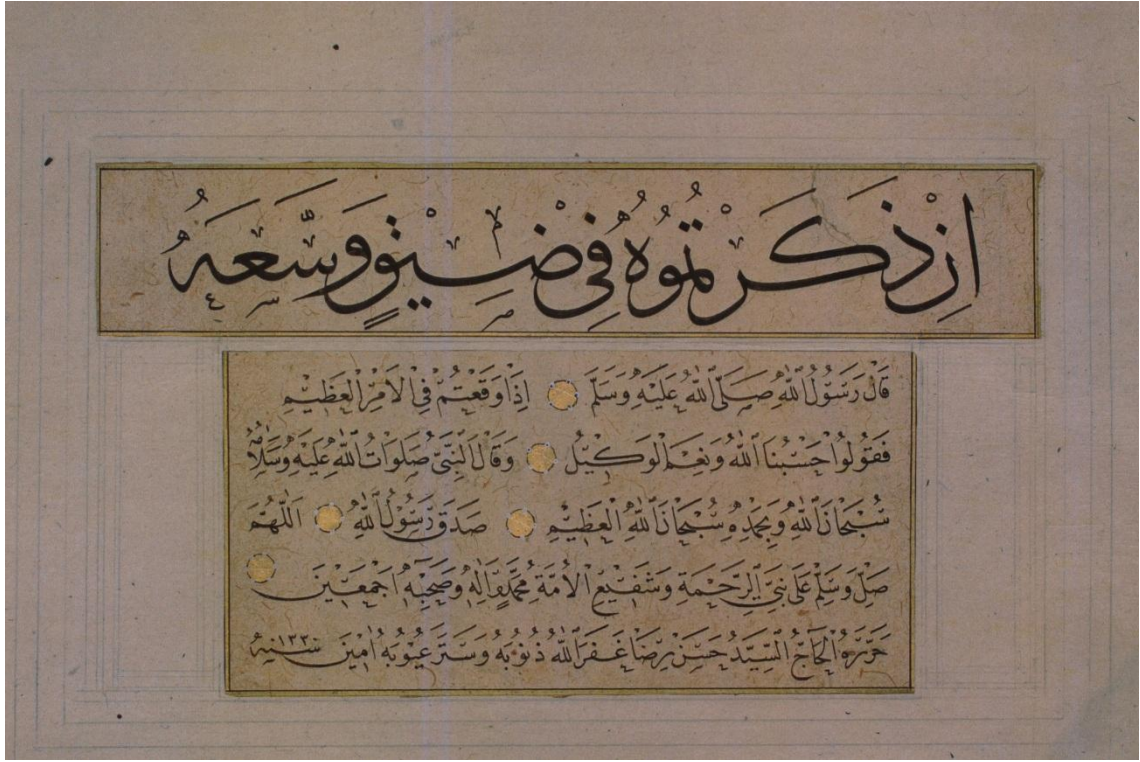 اِنْ ذَكَرْتُمُوهُ فِي ضِيقٍ وَسَّعَهُ
قَالَ رَسُولُ اللّٰهِ صَلَّى اللّٰهُ عَلَيْهِ وَسَلَّمَ اِذَا وَقَعْتُمْ فِي الْاَمْرِ الْعَظِيْمِ
فَقُولُوا حَسْبُنَا اللّٰهُ وَنِعْمَ الْوَكِيْلُ وَقَالَ النَّبِيُّ صَلَوَاتُ اللّٰهِ عَلَيْهِ وَسَلَامُهُ
سُبْحَانَ اللّٰهِ وَبِحَمْدِهِ سُبْحَانَ اللّٰهِ الْعَظِيْمِ صَدَقَ رَسُولُ اللّٰهِ اَللّٰهُمَّ
صَلِّ وَسَلِّمْ عَلَى نَبِيِّ الرَّحْمَةِ وَشَفِيْعِ الْاُمَّةِ مُحَمَّدٍ وَاٰلِهِ وَصَحْبِهِ اَجْمَعِيْنَ
حَرَّرَهُ الْحَاجُّ السَّيِّدُ حَسَنْ رِضَا غَفَرَ اللّٰهُ ذُنُوبَهُ وَسَتَرَ عُيُوبَهُ اٰمِيْنَ سَنَه ١٣٣٠